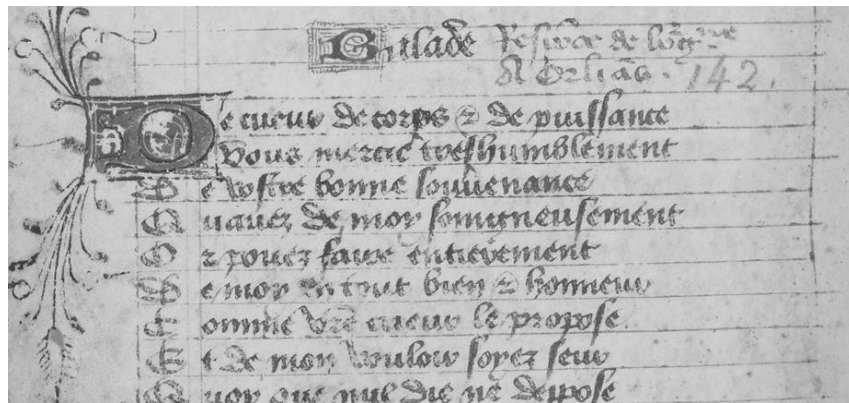 Balade Respōce de bōgͥgne
A Orliās. 142.
De cueur de corps & de puissance
Vous mercie treshumblement
De vostre bonne souvenance
Quavez de moy soingneusement
Or povez faire entierement
De moy en tout bien & honneur
Comme vrē cueur le propose
Et de mon vouloir soyez seur
Quoy que nul die ne deppose